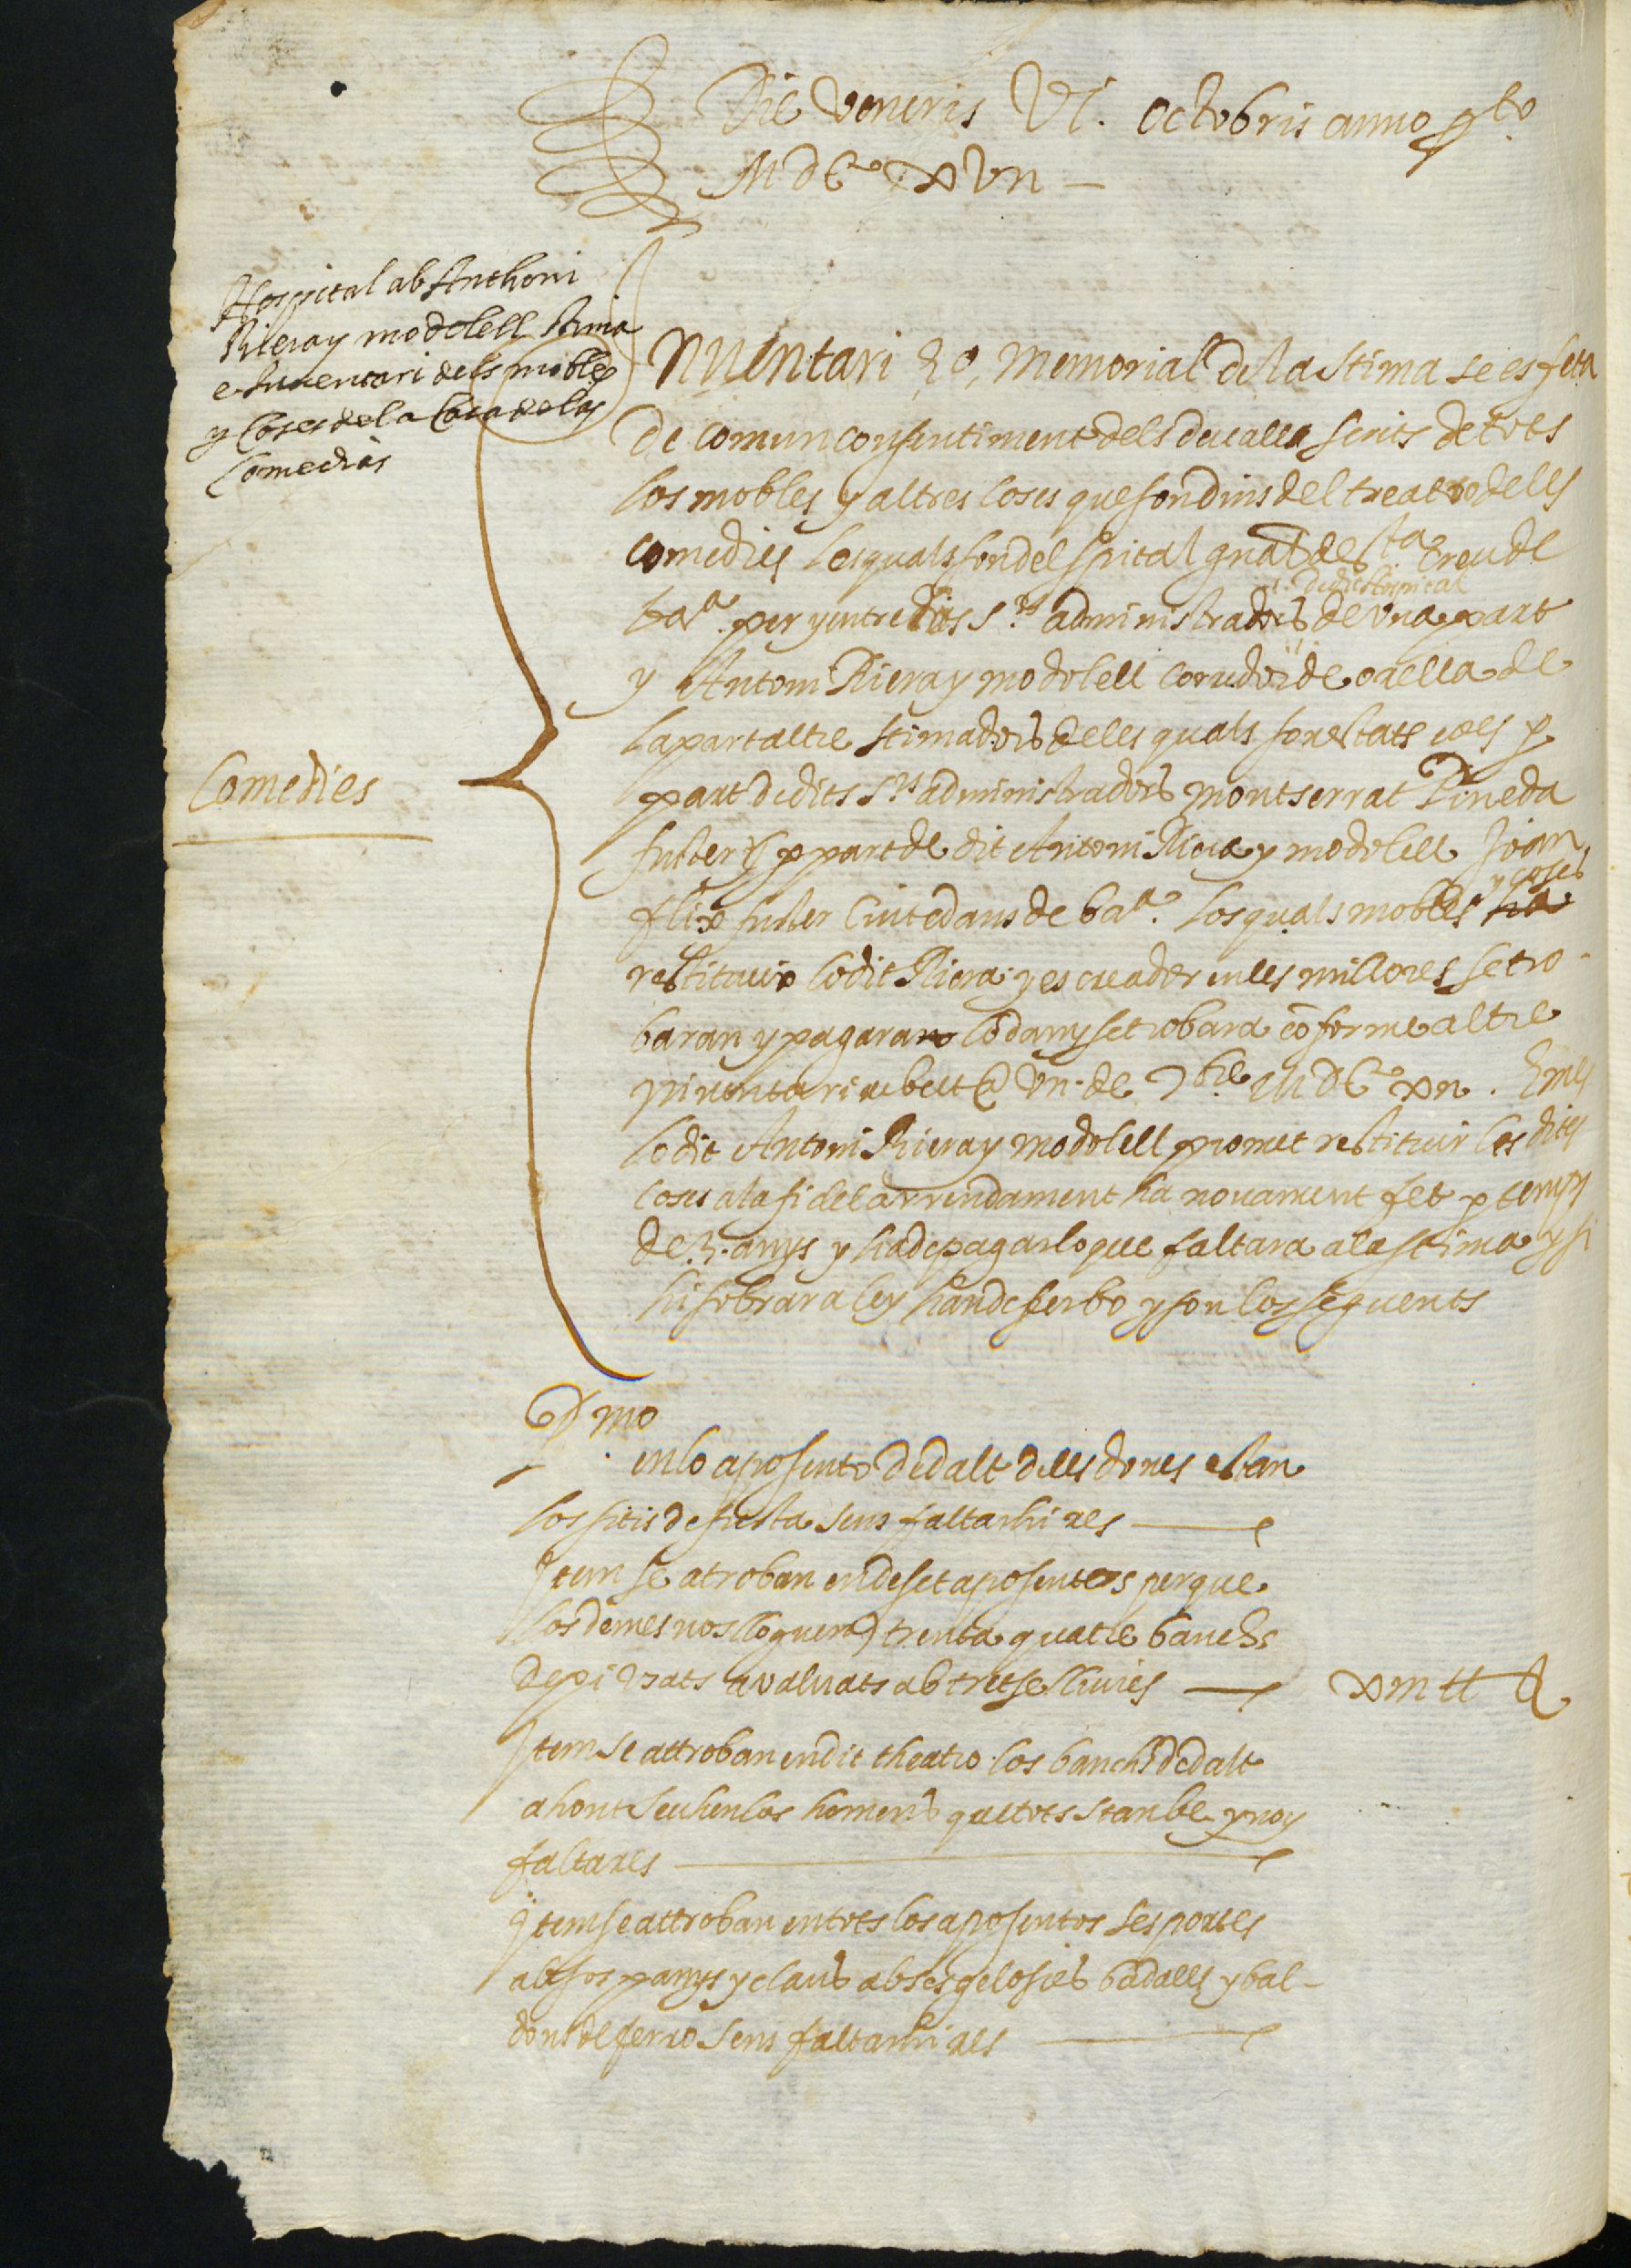 Die Veneris VI. octobris anno pto
MDCo XVII
Hospital ab Anthoni
Riera y modolell stima
e Inventari dels mobles
y coses de la Casa de las
Comedias
Comedies
Inventari 2o, Memorial de la stima se es feta
de comun consentiment dels devall scrits de tots
los mobles y altres coses que son dins del treatro deles
comedies les quals son del spital gnal de sta creu de
bara. per y entre dits srs administradors de dit Hospital de una part
y Antoni Riera y modolell corredor de orella de
la part altre stimadors deles quals son estats ço es p
part de dits srs administradors montserrat Pineda
fuster y p part de dit Antoni Riera y modolell Joan
flix fuster Ciutedans de bara. los quals mobles y coses ha
restituir lo dit Riera y es creador en les millores se tro-
baran y pagaran lo dany se trobara cõforme altre
inventari rebut a VII de 7bre MDCo XII. Emes
lo dit Antoni Riera y modolell promet restituir les dites
coses a la fi del arrendament ha novament fet p temps
de 3. anys y ha de pagar lo que faltara a la stima y si
hi sobrara ley han de ferbo y son los seguents
Pmo
en lo aposento de dalt deles dones estan
los sitis de fusta sens faltarhi res
Item se atroban en deset aposentos perque
los demes nos lloguen) trenta quatre banchs
de pi usats avaluats ab tretse lliures — XIII ll s
Item se attroban en dit theatro los banchs de dalt
ahont seuhen los homens que tots stan be y noy
falta res
Item se attroban en tots los aposentos ses portes
ab sos panys y claus ab ses gelosies badalls y bal-
dons de ferro sens faltarhi res